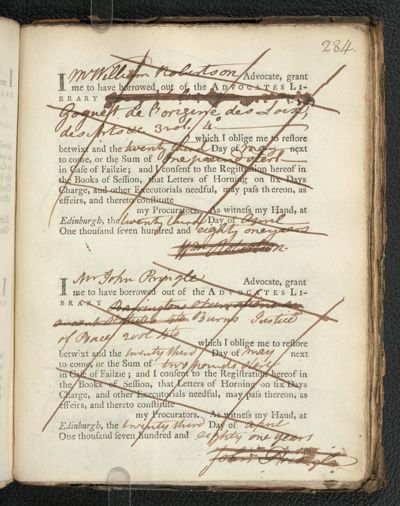 284.
I Mr William Robertson Advocate, grant
me to have borrowed out of the ADVOCATES LI-
BRARY
Goguet de l'origine des Loix,
des Arts &c 3 vol. 4o
which I oblige me to restore
betwixt and the twenty third Day of May next
to come, or the Sum of One pound Ster
in Case of Failzie; and I consent to the Registration hereof in
the Books of Session, that Letters of Horning on six Days
Charge, and other Executorials needful, may pass thereon, as
effeirs, and thereto constitute
my Procurators. As witness my Hand, at
Edinburgh, the twenty third Day of April
One thousand seven hundred and eighty one years
Wm Robertson.
I Mr John Pringle Advocate, grant
me to have borrowed out of the ADVOCATES LI-
BRARY Barringtons Observations on
ancient Statutes 4to Burns Justice
of Peace 2 vol 4to
which I oblige me to restore
betwixt and the twenty third Day of May next
to come, or the Sum of two pounds Ster
in Case of Failzie; and I consent to the Registration hereof in
the Books of Session, that Letters of Horning on six Days
Charge, and other Executorials needful, may pass thereon, as
effeirs, and thereto constitute
my Procurators. As witness my Hand, at
Edinburgh, the twenty third Day of April
One thousand seven hundred and eighty one years
John Pringle